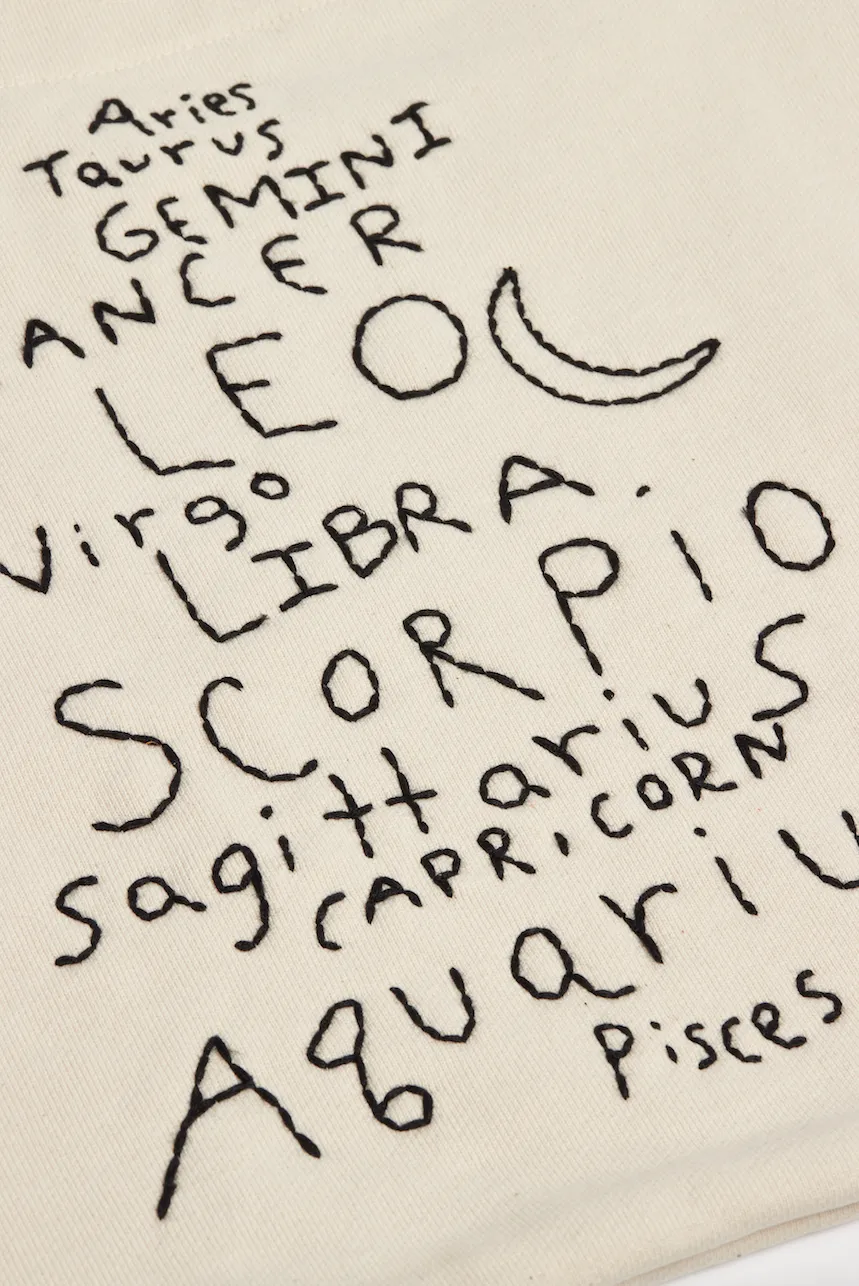 Aries
Taurus
GEMINI
ANCER
LEO
Virgo
LIBRA
SCORPiO
sagittariuS
CAPRiCORN
Aquariu
PiSCES